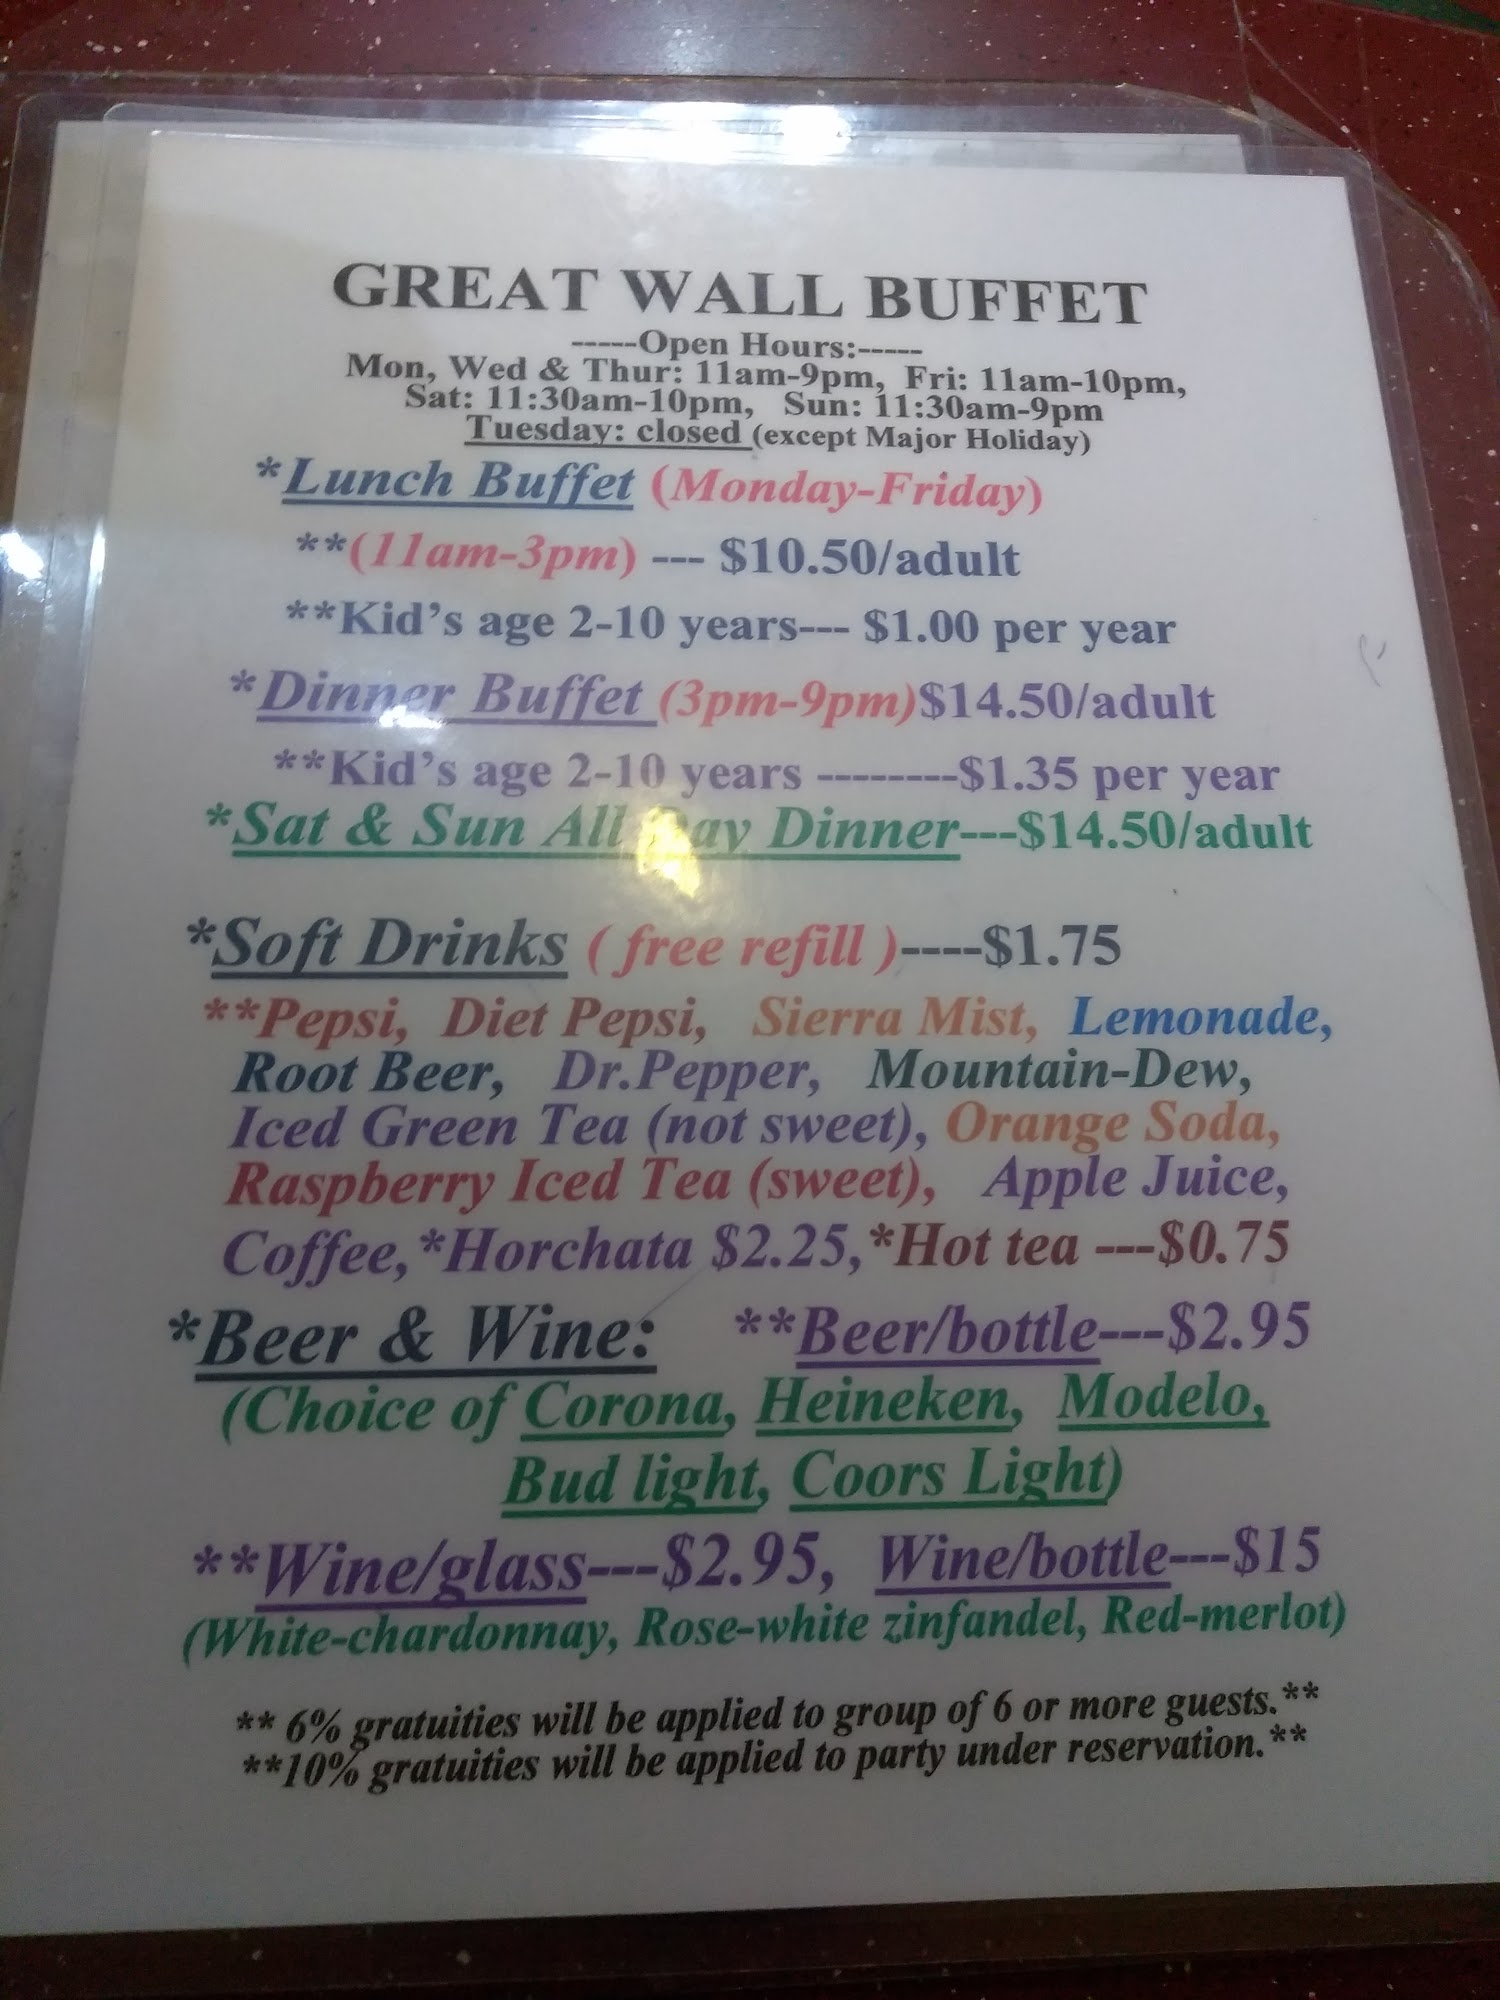 GREAT WALL BUFFET
-----Open Hours:-----
Mon, Wed & Thur: 11am-9pm, Fri: 11am-10pm,
Sat: 11:30am-10pm, Sun: 11:30am-9pm
Tuesday: closed (except Major Holiday)
*Lunch Buffet (Monday-Friday)
**(11am-3pm) --- $10.50/adult
**Kid's age 2-10 years--- $1.00 per year
*Dinner Buffet (3pm-9pm)$14.50/adult
**Kid's age 2-10 years --------$1.35 per year
*Sat & Sun All Day Dinner---$14.50/adult
*Soft Drinks ( free refill )----$1.75
**Pepsi, Diet Pepsi, Sierra Mist, Lemonade,
Root Beer, Dr.Pepper, Mountain-Dew,
Iced Green Tea (not sweet), Orange Soda,
Raspberry Iced Tea (sweet), Apple Juice,
Coffee,*Horchata $2.25,*Hot tea ---$0.75
*Beer & Wine: **Beer/bottle---$2.95
(Choice of Corona, Heineken, Modelo,
Bud light, Coors Light)
**Wine/glass---$2.95, Wine/bottle---$15
(White-chardonnay, Rose-white zinfandel, Red-merlot)
** 6% gratuities will be applied to group of 6 or more guests.**
**10% gratuities will be applied to party under reservation.**